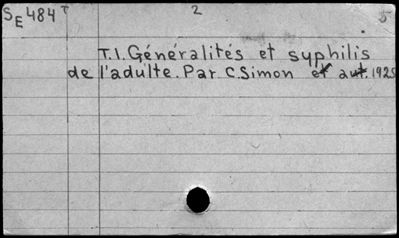 SE 484 T 2 5
T.I. Généralités et syphilis
de l'adulte. Par C. Simon et aut. 1925